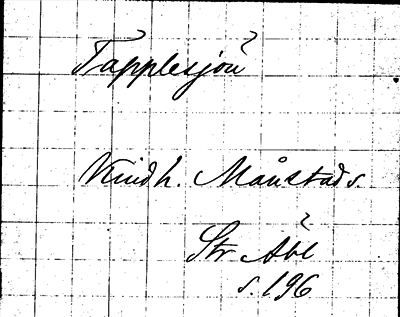 Tapplesjön
Kind h. Månstad s.
Str Åbl
s. 196